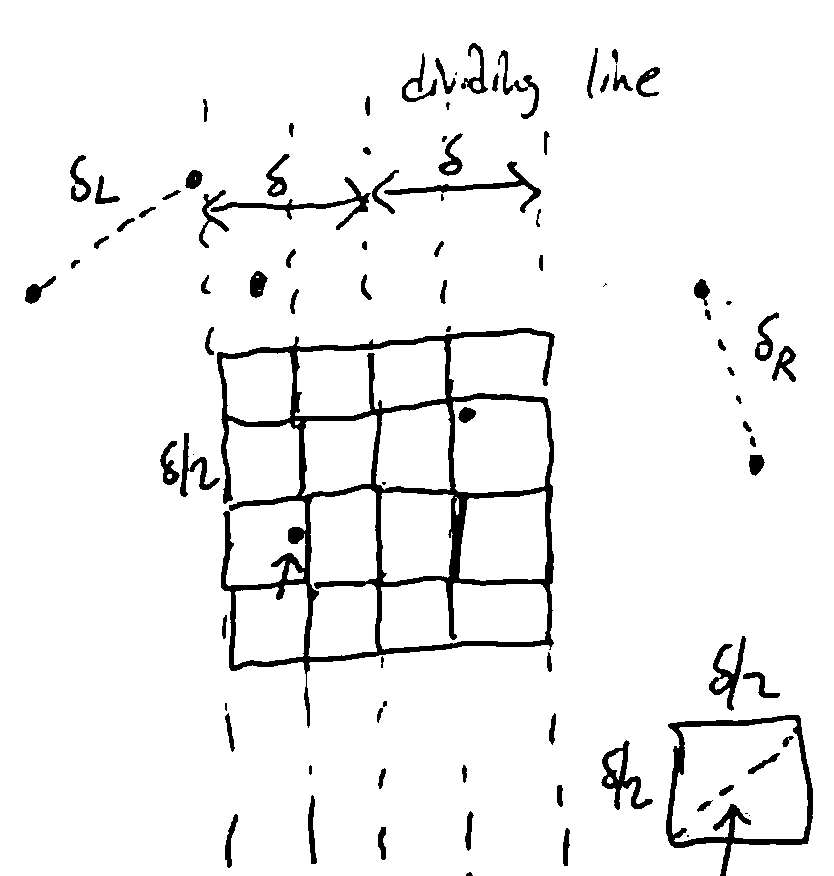 dividing line
δL
δ
δ
δR
δ/2
δ/2
δ/2